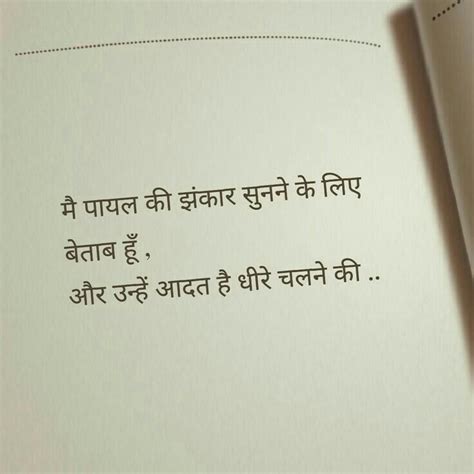 मै पायल की झंकार सुनने के लिए
बेताब हूँ ,
और उन्हें आदत है धीरे चलने की ..